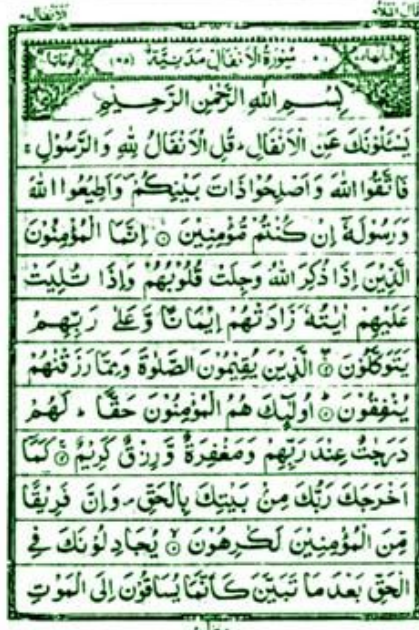 سُوْرَةُ الْاَنْفَالِ مَدَنِيَّةٌ
بِسْمِ اللهِ الرَّحْمٰنِ الرَّحِيْمِ
يَسْـَٔلُوْنَكَ عَنِ الْاَنْفَالِ ؕ قُلِ الْاَنْفَالُ لِلّٰهِ وَالرَّسُوْلِ ۚ
فَاتَّقُوا اللهَ وَاَصْلِحُوْا ذَاتَ بَيْنِكُمْ ۪ وَاَطِيْعُوا اللهَ
وَرَسُوْلَهٗۤ اِنْ كُنْتُمْ مُّؤْمِنِيْنَ ۝ اِنَّمَا الْمُؤْمِنُوْنَ
الَّذِيْنَ اِذَا ذُكِرَ اللهُ وَجِلَتْ قُلُوْبُهُمْ وَاِذَا تُلِيَتْ
عَلَيْهِمْ اٰيٰتُهٗ زَادَتْهُمْ اِيْمَانًا وَّعَلٰى رَبِّهِمْ
يَتَوَكَّلُوْنَ ۝ الَّذِيْنَ يُقِيْمُوْنَ الصَّلٰوةَ وَمِمَّا رَزَقْنٰهُمْ
يُنْفِقُوْنَ ۝ اُولٰٓئِكَ هُمُ الْمُؤْمِنُوْنَ حَقًّا ؕ لَهُمْ
دَرَجٰتٌ عِنْدَ رَبِّهِمْ وَمَغْفِرَةٌ وَّرِزْقٌ كَرِيْمٌ ۝ كَمَاۤ
اَخْرَجَكَ رَبُّكَ مِنْۢ بَيْتِكَ بِالْحَقِّ ۪ وَاِنَّ فَرِيْقًا
مِّنَ الْمُؤْمِنِيْنَ لَكٰرِهُوْنَ ۝ يُجَادِلُوْنَكَ فِى
الْحَقِّ بَعْدَ مَا تَبَيَّنَ كَاَنَّمَا يُسَاقُوْنَ اِلَى الْمَوْتِ